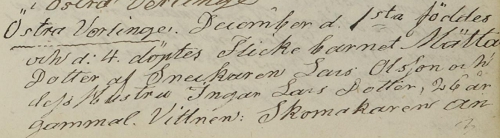 Östra Vorlinge. December d. 1sta föddes
och d: 4. döptes Flicke barnet Mätta
Dotter af Snickaren Lars Olsson och
dess Hustru Ingar Lars Dotter, 26 år
gammal. Vittnen: Skomakaren An-